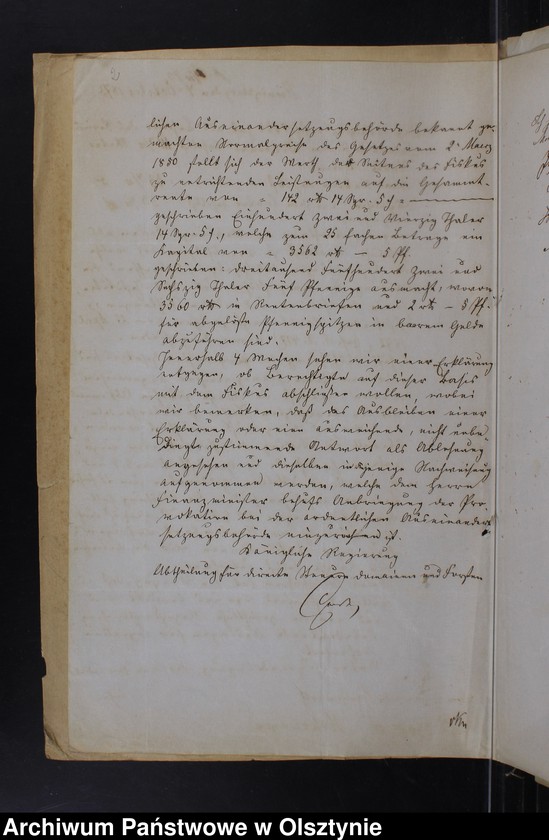 lichen Auseinandersetzungsbehörde bekannt ge-
machten Normalpreise des Gesetzes vom 2. Maerz
1850 stellt sich der Werth der Seitens des Fiskus
zu entrichtenden Leistungen auf die Gesammt-
rente von 142 rtl 14 Sgr. 5 J
geschrieben Einhundert zwei und Vierzig Thaler
14 Sgr. 5 J., welche zum 25 fachen Betrage ein
Kapital von 3562 rtl — 5 Pf.
geschrieben: Dreitausend Fünfhundert Zwei und
Sechszig Thaler Fünf Pfennige ausmacht, wovon
3560 rtl in Rentenbriefen und 2 rtl — 5 Pf.
für abgelöste Pfennigspitzen in baarem Gelde
abzuführen sind.
Innerhalb 4 Wochen sehen wir einer Erklärung
entgegen, ob Berechtigte auf dieser Basis
mit dem Fiskus abschließen wollen, wobei
wir bemerken, daß das Ausbleiben einer
Erklärung oder eine ausweichende, nicht unbe-
dingt zustimmende Antwort als Ablehnung
angesehen und dieselben in diejenige Nachweisung
aufgenommen werden, welche dem Herrn
Finanzminister behufs Anbringung der Pro-
vokation bei der ordentlichen Auseinander-
setzungsbehörde einzureichen ist.
Königliche Regierung
Abtheilung für directe Steuern Domainen und Forsten
Archiwum Państwowe w Olsztynie